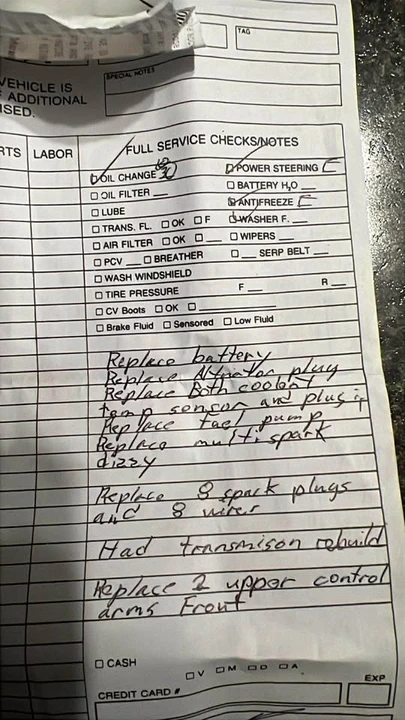 TAG
SPECIAL NOTES
VEHICLE IS
ADDITIONAL
SED.
RTS LABOR FULL SERVICE CHECKS/NOTES
OIL CHANGE POWER STEERING
OIL FILTER BATTERY H₂O
LUBE ANTIFREEZE
TRANS. FL. OK F WASHER F.
AIR FILTER OK WIPERS
PCV BREATHER SERP BELT
WASH WINDSHIELD
TIRE PRESSURE F R
CV Boots OK
Brake Fluid Sensored Low Fluid
Replace battery
Replace Altnator plug
Replace Both coolent
temp sensor and plug
Replace fuel pump
Replace multi spark
dizzy
Replace 8 spark plugs
and 8 wires
Had transmison rebuild
Replace 2 upper control
arms Front
CASH
V M D A
CREDIT CARD #
EXP